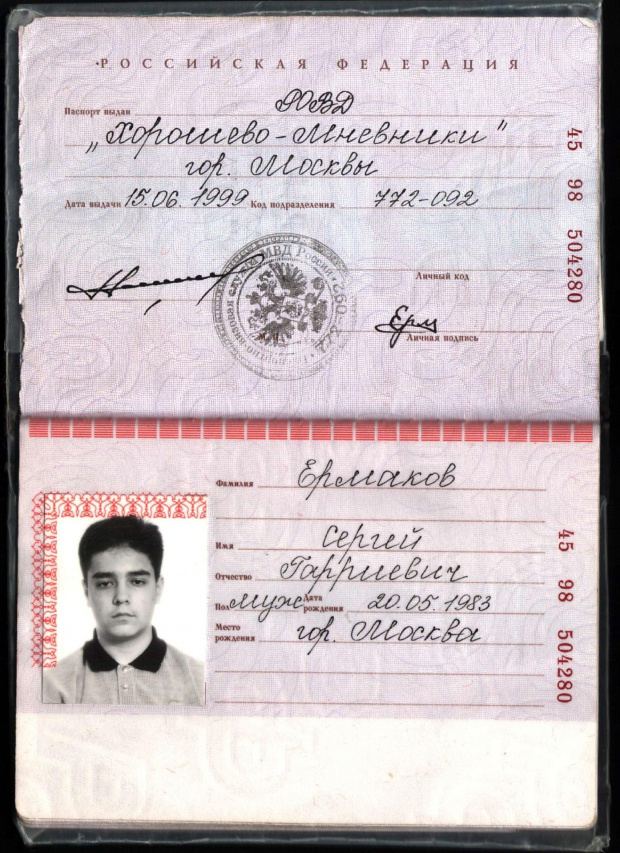 ·РОССИЙСКАЯ ФЕДЕРАЦИЯ
Паспорт выдан РОВД
„Хорошево-Мневники"
гор. Москвы
Дата выдачи 15.06.1999 Код подразделения 772-092
Личный код
Ерм
Личная подпись
45 98 504280
МВД России
772
092
Фамилия Ермаков
Имя Сергей
Отчество Гарриевич
Пол муж Дата рождения 20.05.1983
Место рождения гор. Москва
45 98 504280